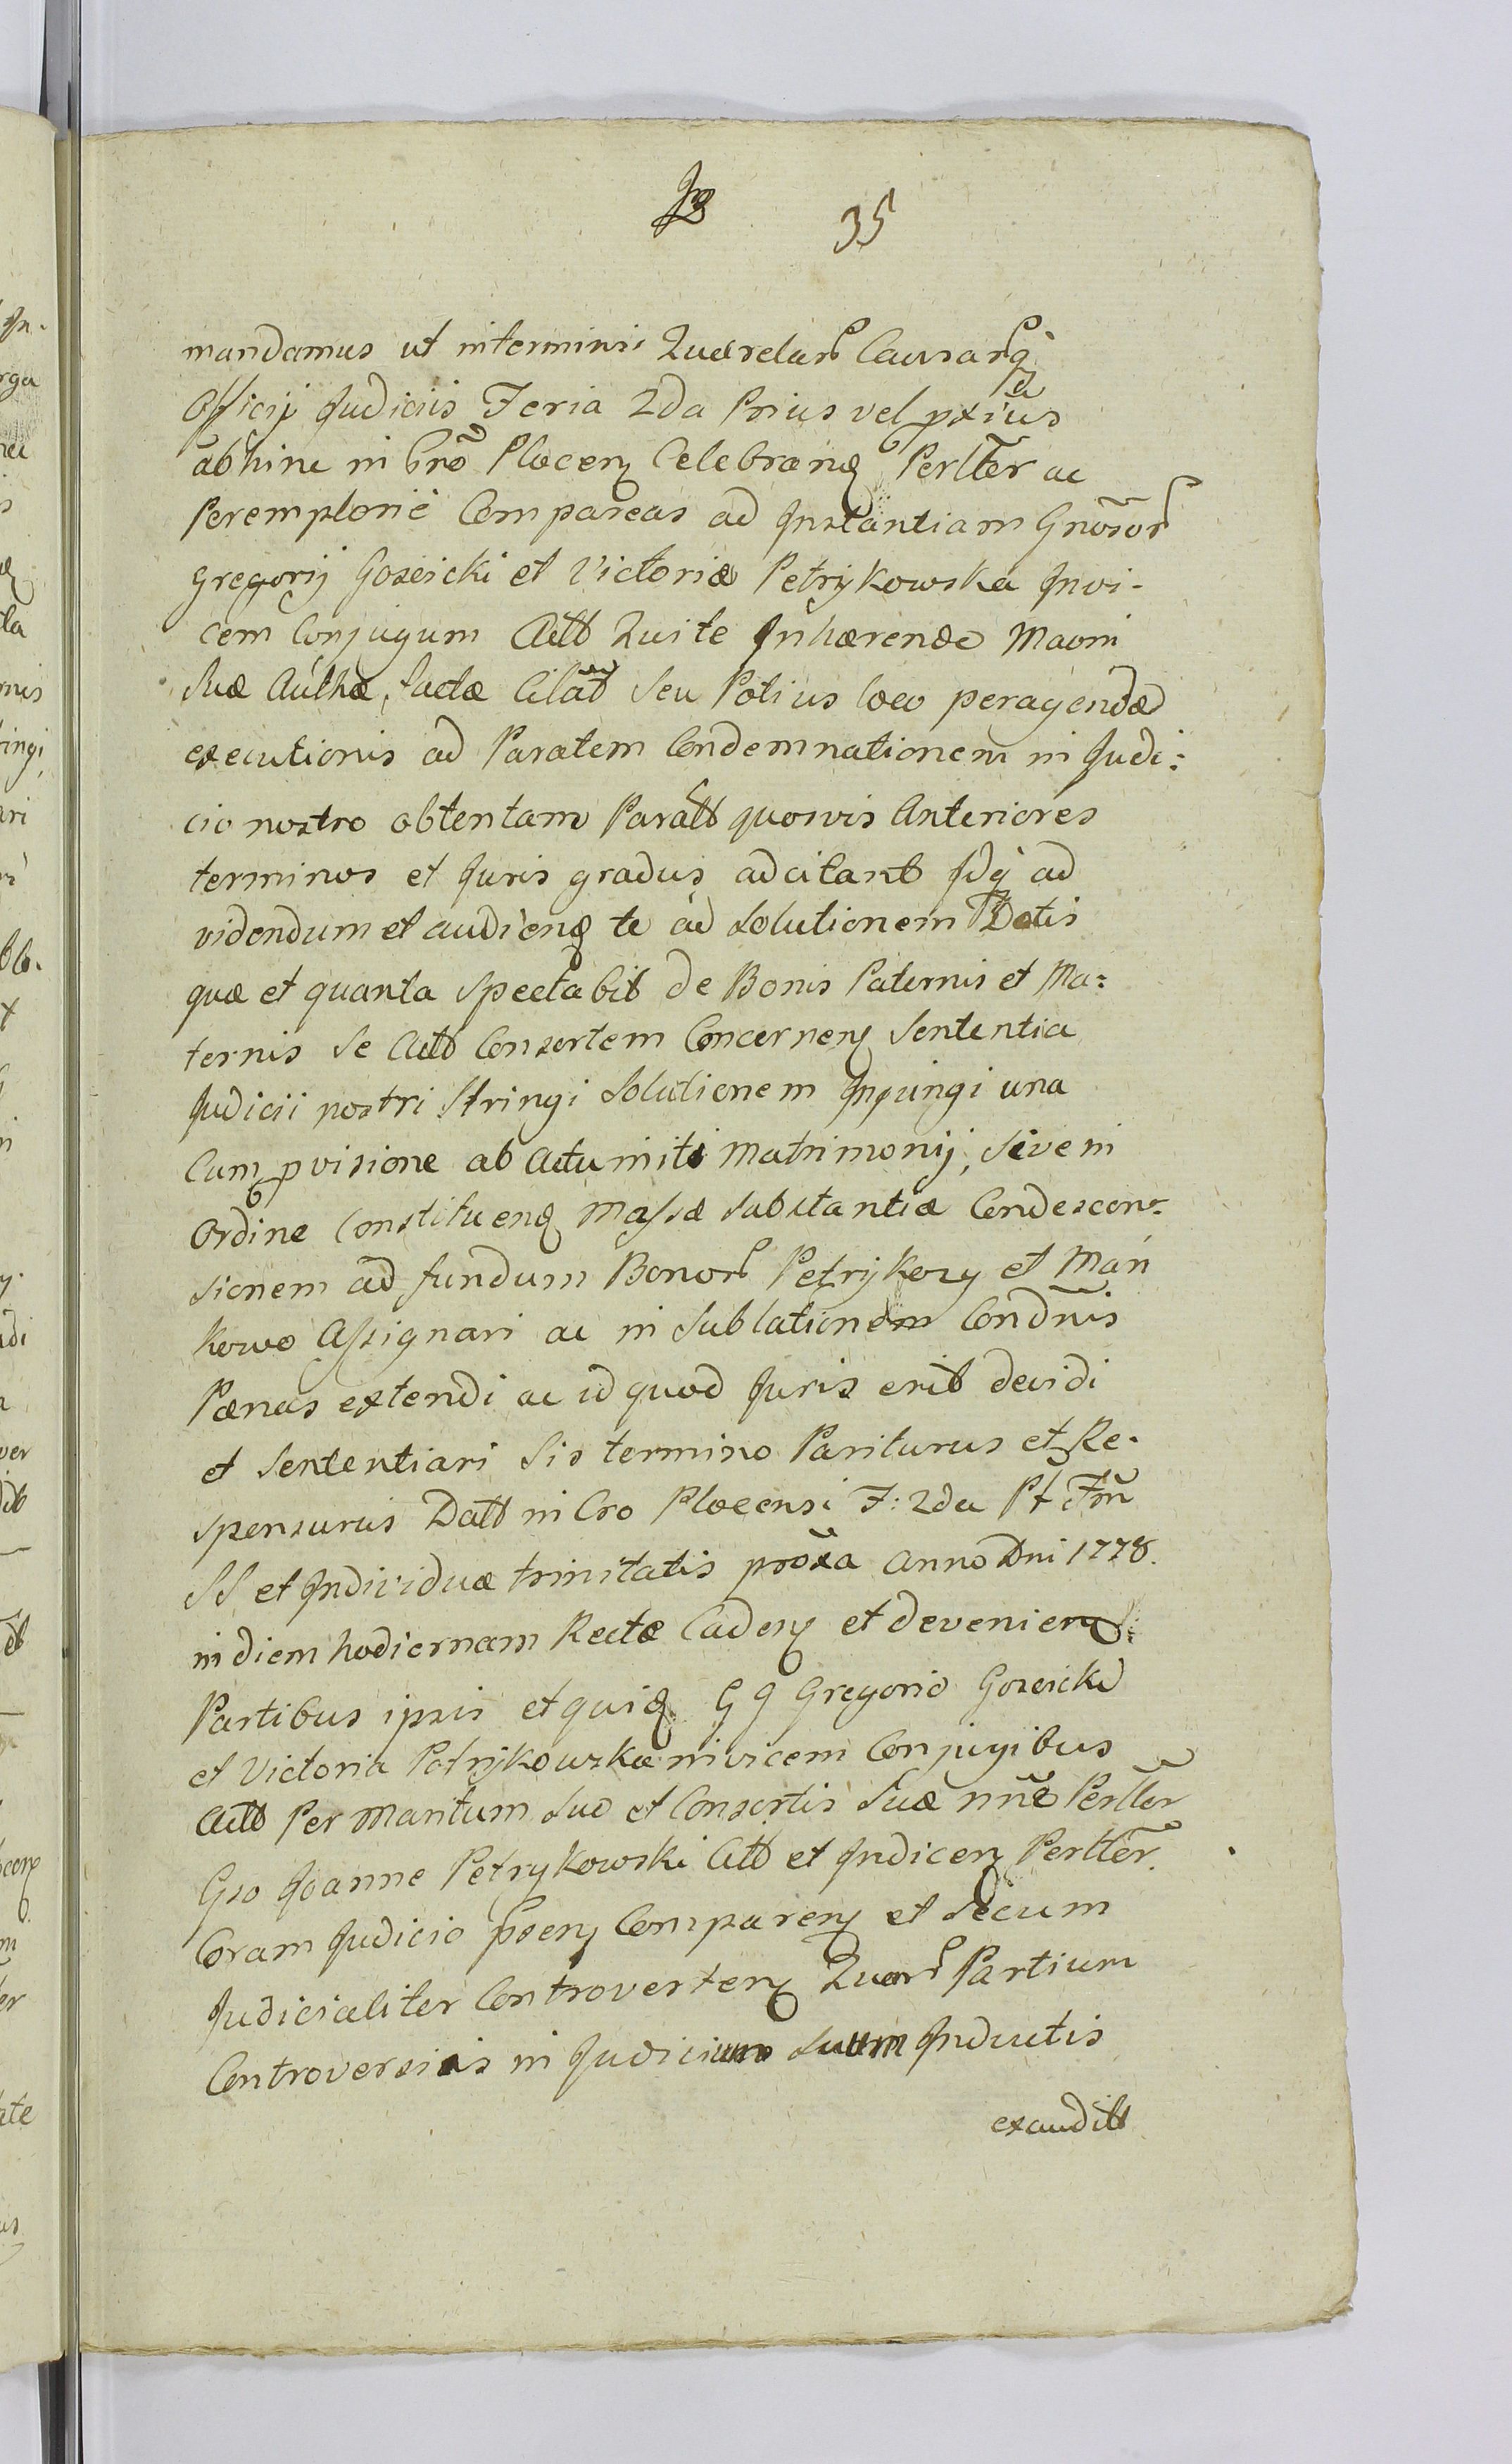 35
mandamus ut in terminis Querelar̃ Causarq̃
Officij Judiciis Feria 2da Prius vel pxĩus
abhinc in Crõ Plocen̄ Celebran̄ Perltẽr ac
Peremptorie Compareas ad Instantiam Gnõsor̃
Gregorij Gozeicki et Victoriæ Petrykowska Invi-
cem Conjugum Actt Qui te Inhærendo
Suæ factæ Citãt Seu Potius loco peragendæ
executionis ad Paratem Condemnationem in Judi:
cio nostro obtentam Paratt quosvis Anteriores
terminos et Juris gradus adcitant Idq̃ ad
videndum et audiend̄ te ad Solutionem Dotis
quæ et quanta Spectabit de Bonis Paternis et Ma:
ternis Se Actt Consortem Concernen̄ Sententia
Judicii nostri Stringi Solutionem Injungi una
Cum pvisione ab Actu initi Matrimonij, Sive in
Ordine Constituend̄ Massæ Substantiæ Condescen-
sionem ad fundum Bonor̃ Petrykozy et Mań
kowo Assignari ac in Sublationem Condnĩs
Pænas extendi ac id quod Juris erit decidi
et Sententiari Sis termino Pariturus et Re-
sponsurus Datt in Cro Plocensi F: 2da Pt Fm̃
SS et Individuæ trinitatis proxã Anno Dni 1778.
in diem hodiernam Recte Caden̄ et devenien̄
Partibus ipsis et quid̄ G G Gregorio Gozeicki
et Victoria Petrykowska invicem Conjugibus
Actt Per Maritum Suo et Consortis Suæ nñe Perltẽr
Gso Joanne Petrykowski Citt et Judicen̄ Perltẽr.
Coram Judicio psen̄ Comparen̄ et Secum
Judicialiter Controverten̄ Quar̃ Partium
Controversiis in Judicium Suum Inductis
exauditt